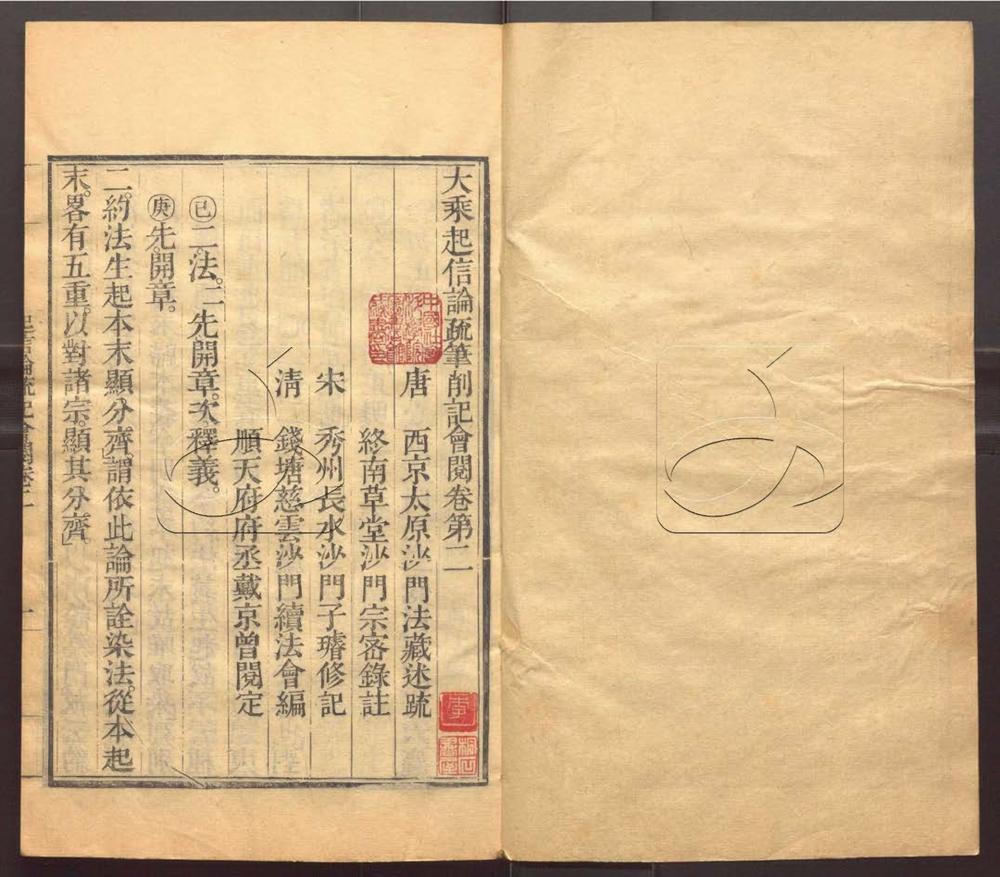 大乘起信論疏筆削記會閱卷第二
唐　西京太原沙門法藏述疏
終南草堂沙門宗密錄註
宋　秀州長水沙門子璿修記
清　錢塘慈雲沙門續法會編
順天府府丞戴京曾閱定
㊁二。法。二先開章。次釋義。
庚先開章。
二。約法生起本末顯分齊。謂依此論所詮染法。從本起
末。畧有五重。以對諸宗。顯其分齊。」
起信論疏記會閱卷二
一